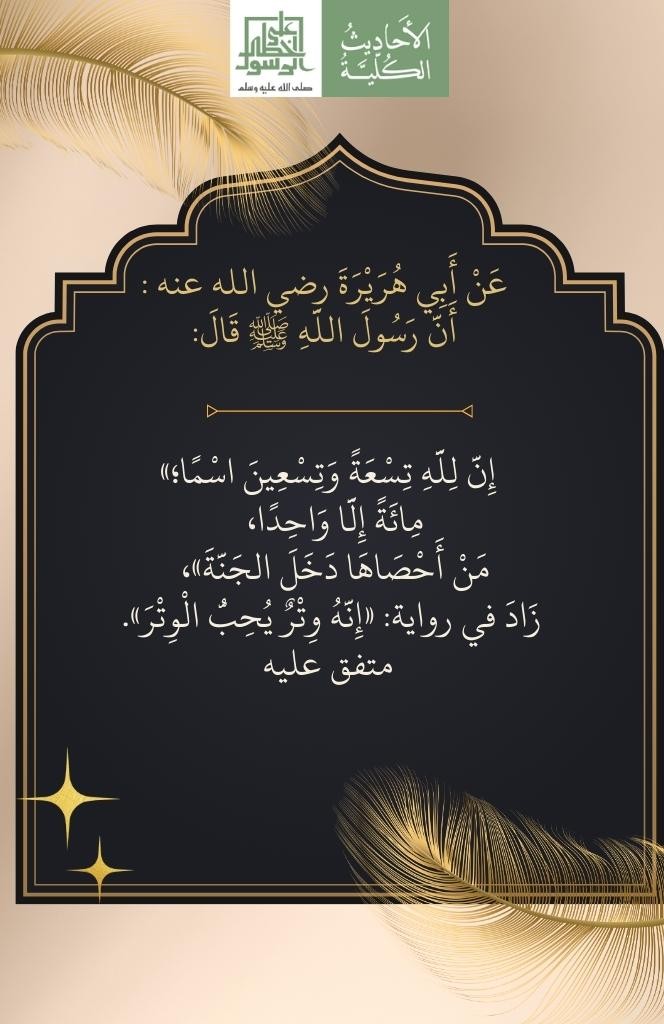 الأَحَادِيثُ
الكُلِّيَّةُ
على
خطى
الرسول
صلى الله عليه وسلم
عَنْ أَبِي هُرَيْرَةَ رضي الله عنه :
أَنّ رَسُولَ اللّهِ ﷺ قَالَ:
إِنّ لِلّهِ تِسْعَةً وَتِسْعِينَ اسْمًا؛»
مِائَةً إِلّا وَاحِدًا،
مَنْ أَحْصَاهَا دَخَلَ الجَنّةَ»،
زَادَ في رواية: «إِنّهُ وِتْرٌ يُحِبُّ الْوِتْرَ».
متفق عليه